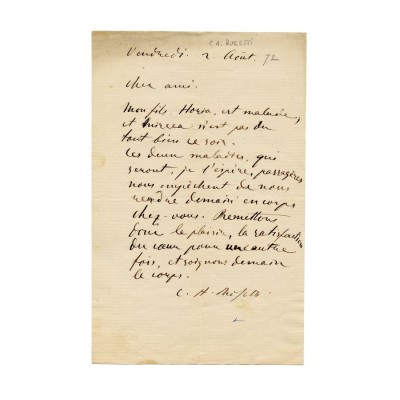 C.A. ROSETTI
Vendredi 2 Août 72
Cher ami.
Mon fils Horia, est malade,
et Mircea n'est pas du
tout bien ce soir.
Ces deux maladies, qui
seront, je l'espère, passagères
nous empêchent de nous
rendre demain en corps
chez-vous. Remettons
donc le plaisir, la satisfaction
du cœur pour une autre
fois, et soignons demain
le corps.
C. A. Rosetti